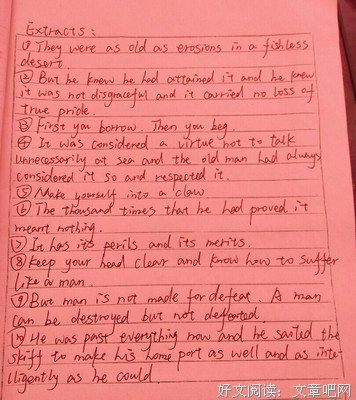 Extracts:
① They were as old as erosions in a fishless
desert.
② But he knew he had attained it and he knew
it was not disgraceful and it carried no loss of
true pride.
③ First you borrow. Then you beg.
④ It was considered a virtue not to talk
unnecessarily at sea and the old man had always
considered it so and respected it.
⑤ Make yourself into a claw
⑥ The thousand times that he had proved it
meant nothing.
⑦ It has its perils and its merits.
⑧ Keep your head clear and know how to suffer
like a man.
⑨ But man is not made for defeat. A man
can be destroyed but not defeated.
⑩ He was past everything now and he sailed the
skiff to make his home port as well and as inte-
lligently as he could.
好文阅读：文章吧网